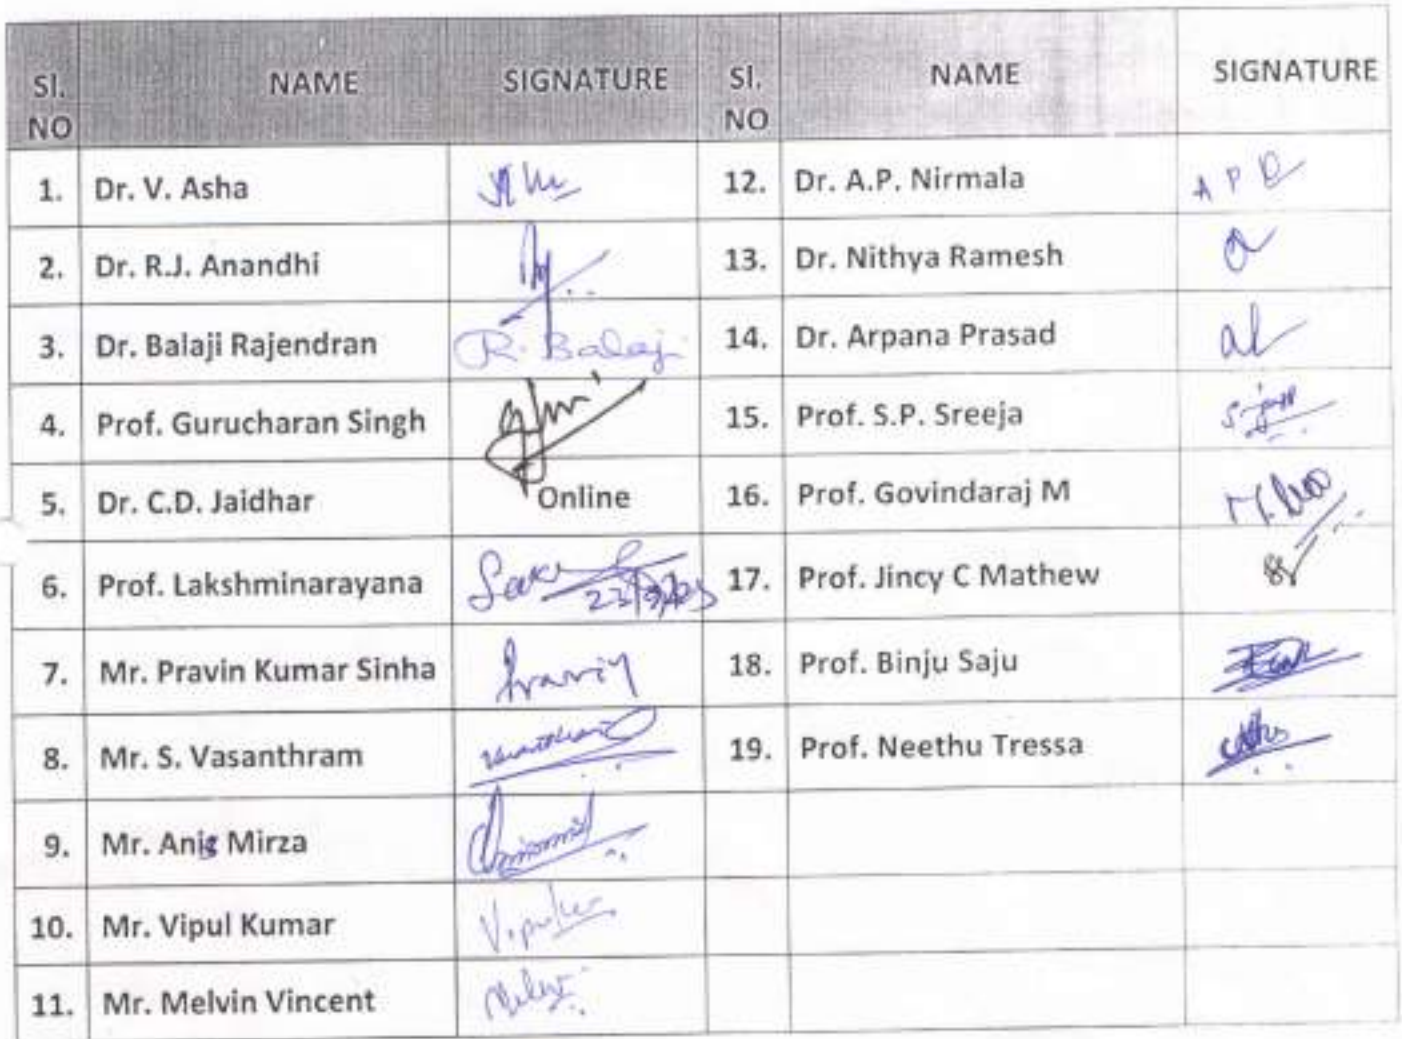 Sl. NO NAME SIGNATURE Sl. NO NAME SIGNATURE
1. Dr. V. Asha 12. Dr. A.P. Nirmala
2. Dr. R.J. Anandhi 13. Dr. Nithya Ramesh
3. Dr. Balaji Rajendran R. Balaji 14. Dr. Arpana Prasad
4. Prof. Gurucharan Singh 15. Prof. S.P. Sreeja
5. Dr. C.D. Jaidhar Online 16. Prof. Govindaraj M
6. Prof. Lakshminarayana 17. Prof. Jincy C Mathew
7. Mr. Pravin Kumar Sinha 18. Prof. Binju Saju
8. Mr. S. Vasanthram 19. Prof. Neethu Tressa
9. Mr. Anis Mirza
10. Mr. Vipul Kumar
11. Mr. Melvin Vincent